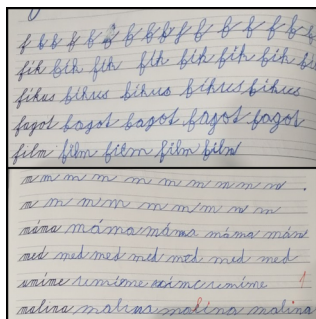 f f f f f f f f f f f f f
fík fík fík fík fík fík fík fík
fíkus fíkus fíkus fíkus fíkus
fagot fagot fagot fagot fagot
film film film film film
m m m m m m m m m m m
m m m m m m m m m m
máma máma máma máma mám
med med med med med med
umíme umíme umíme umíme 1
malina malina malina malina